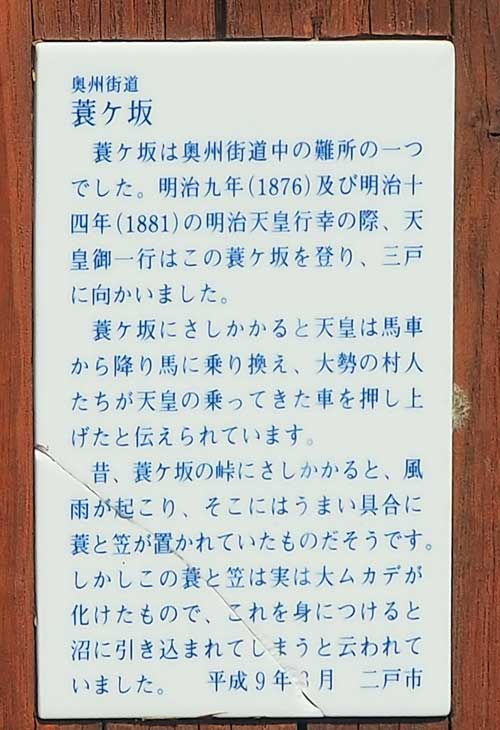 奥州街道
蓑ケ坂
　蓑ケ坂は奥州街道中の難所の一つ
でした。明治九年(1876)及び明治十
四年(1881)の明治天皇行幸の際、天
皇御一行はこの蓑ケ坂を登り、三戸
に向かいました。
　蓑ケ坂にさしかかると天皇は馬車
から降り馬に乗り換え、大勢の村人
たちが天皇の乗ってきた車を押し上
げたと伝えられています。
　昔、蓑ケ坂の峠にさしかかると、風
雨が起こり、そこにはうまい具合に
蓑と笠が置かれていたものだそうです。
しかしこの蓑と笠は実は大ムカデが
化けたもので、これを身につけると
沼に引き込まれてしまうと云われて
いました。　平成９年 月　二戸市